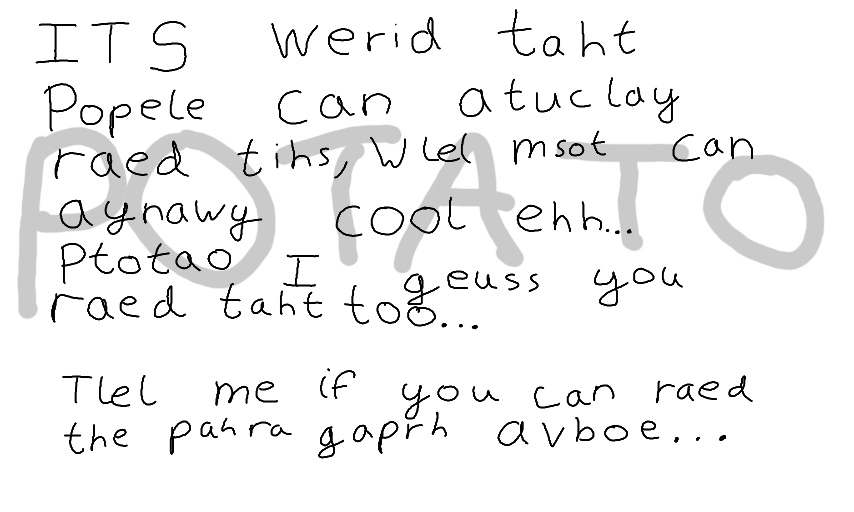 ITS werid taht
Popele can atuclay
raed tihs, Wlel msot can
POTATO
aynawy cool ehh...
Ptotao I geuss you
raed taht too...
Tlel me if you can raed
the pahra gaprh avboe...